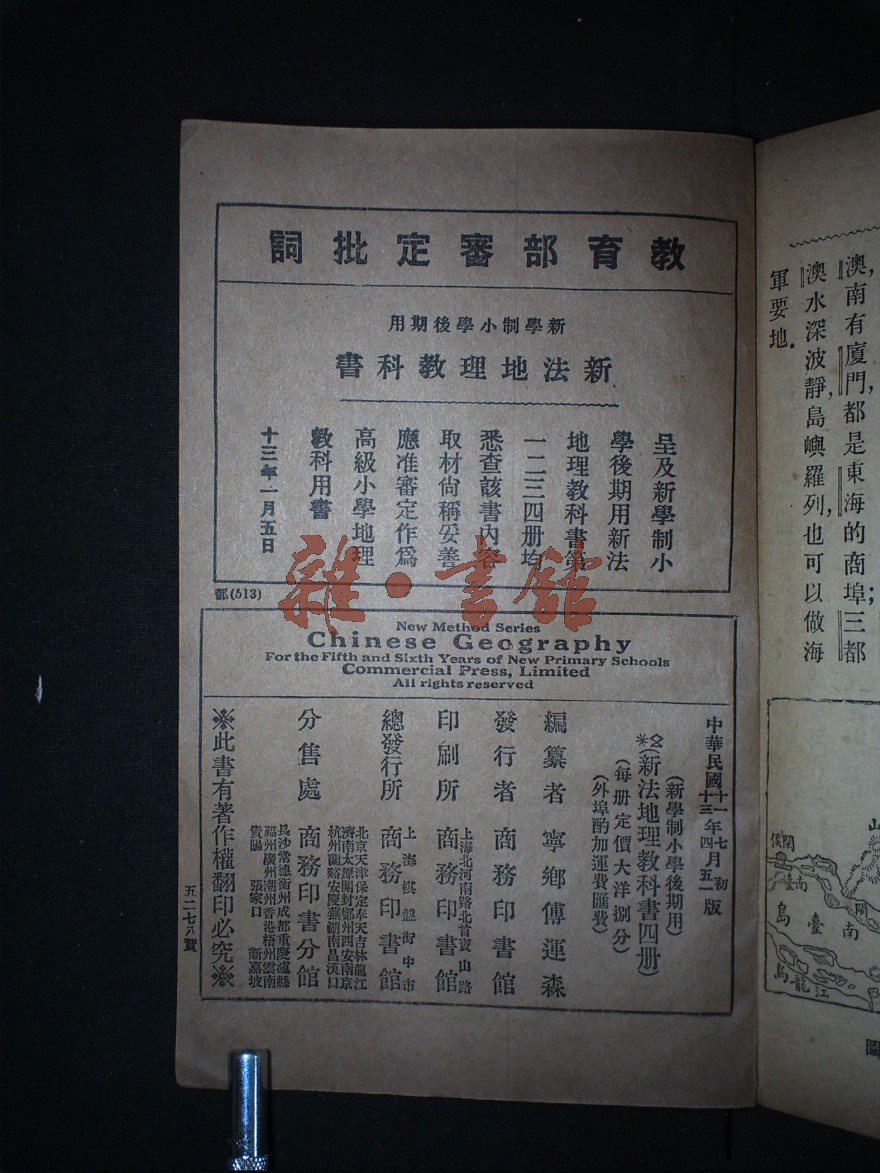 教育部審定批詞
新學制小學後期用
新法地理教科書
呈及新學制小
學後期用新法
地理教科書第
一二三四册均
悉查該書内容
取材尙稱妥善
應准審定作爲
高級小學地理
敎科用書
十三年一月五日
部(513)
雜·書館
New Method Series
Chinese Geography
For the Fifth and Sixth Years of New Primary Schools
Commercial Press, Limited
All rights reserved
中華民國十一年七月初版
十三年四月五一版
(新學制小學後期用)
(新法地理教科書四册)
(每册定價大洋捌分)
(外埠酌加運費匯費)
編纂者 寧鄉傅運森
發行者 商務印書館
印刷所 上海北河南路北首寶山路 商務印書館
總發行所 上海棋盤街中市 商務印書館
分售處 商務印書分館
北京天津保定奉天吉林龍江
濟南太原開封鄭州西安南京
杭州蘭谿安慶蕪湖南昌漢口
長沙常德衡州成都重慶瀘縣
福州廣州潮州香港梧州雲南
貴陽 張家口 新嘉坡
※此書有著作權翻印必究※
五二七八賀
澳,南有廈門,都是東海的商埠;三都
澳水深波靜,島嶼羅列,也可以做海
軍要地.